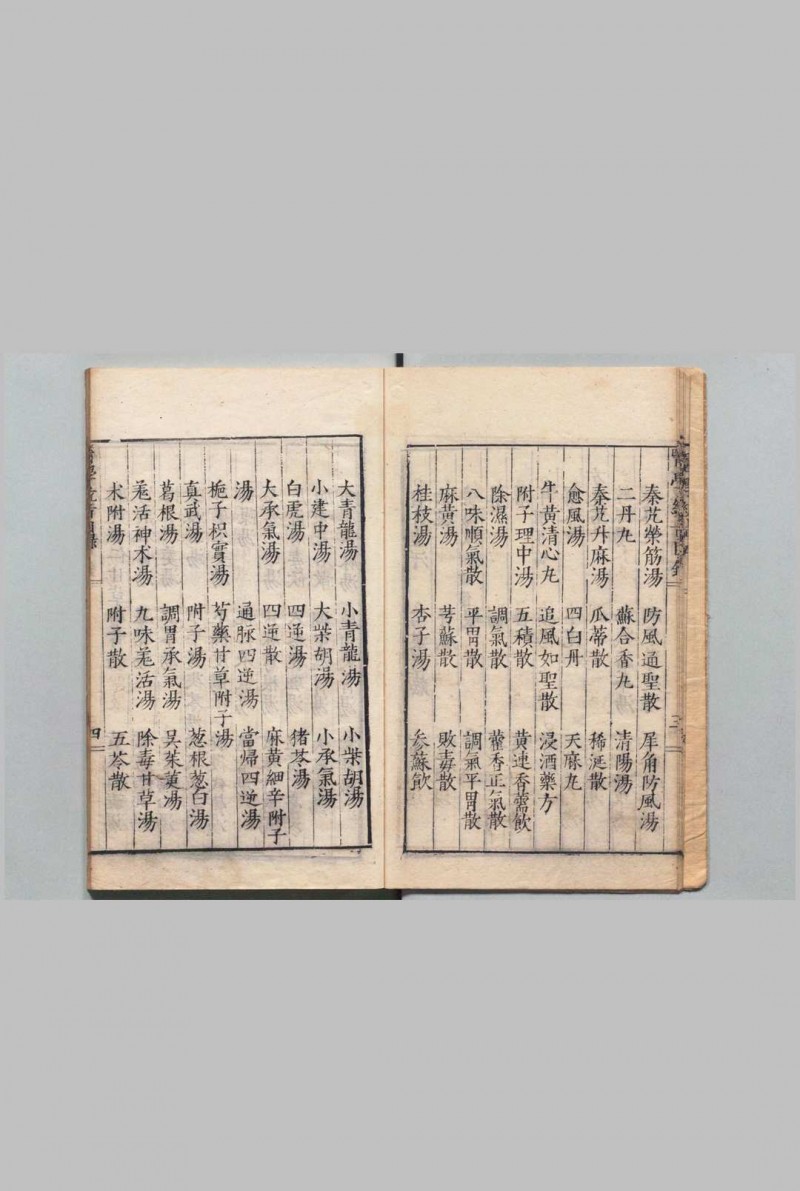 秦艽榮筋湯 防風通聖散 犀角防風湯
二丹丸 蘇合香丸 清陽湯
秦艽升麻湯 瓜蒂散 稀涎散
愈風湯 四白丹 天麻丸
牛黃清心丸 追風如聖散 浸酒藥方
附子理中湯 五積散 黃連香薷飲
除濕湯 調氣散 藿香正氣散
八味順氣散 平胃散 調氣平胃散
麻黃湯 芎蘇散 敗毒散
桂枝湯 杏子湯 參蘇飲
三
大青龍湯 小青龍湯 小柴胡湯
小建中湯 大柴胡湯 小承氣湯
白虎湯 四逆湯 猪苓湯
大承氣湯 四逆散 麻黃細辛附子
湯 通脉四逆湯 當歸四逆湯
梔子枳實湯 芍藥甘草附子湯
真武湯 附子湯 葱根葱白湯
葛根湯 調胃承氣湯 吳茱萸湯
羌活神术湯 九味羌活湯 除毒甘草湯
术附湯 附子散 五苓散
四